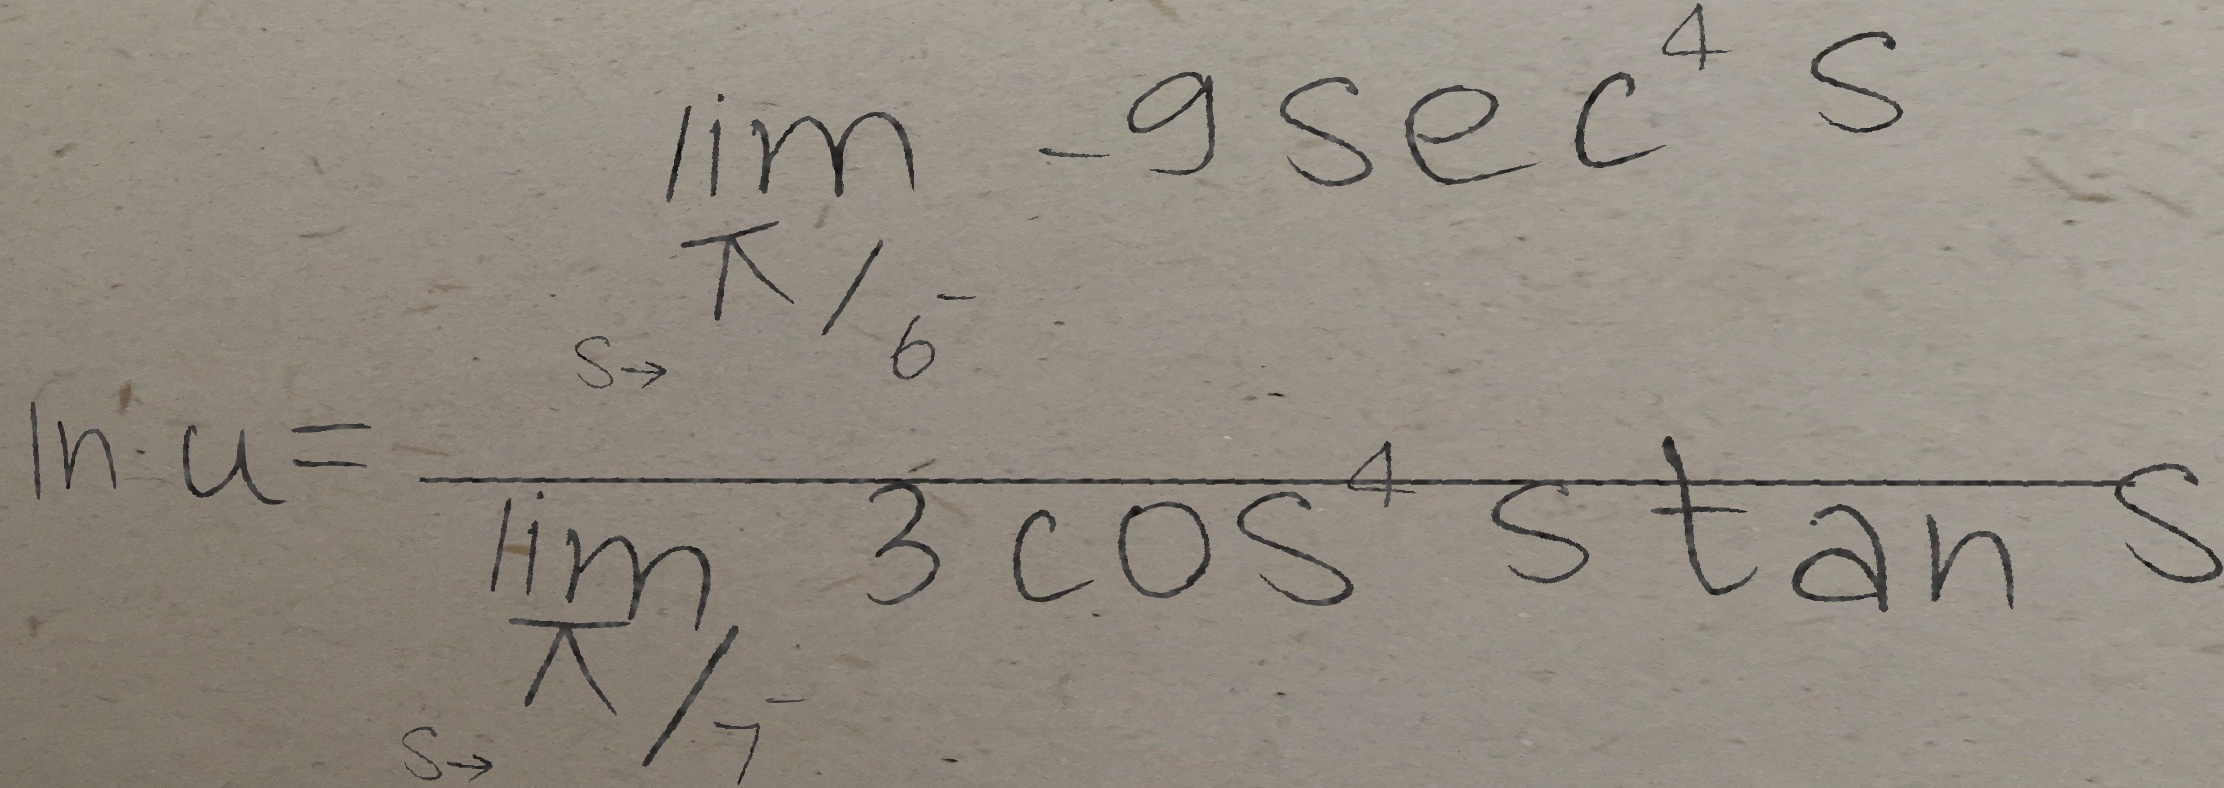 \ln u = \frac{\lim_{s \to \pi/6^-} -9 \sec^4 s}{\lim_{s \to \pi/7^-} 3 \cos^4 s \tan s}